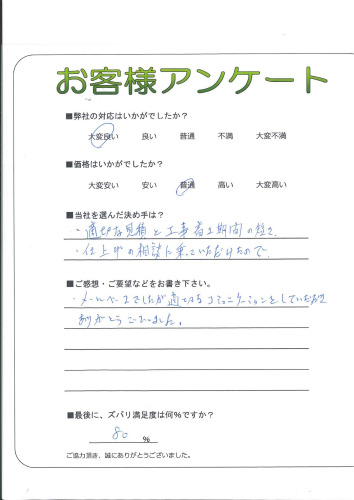 お客様アンケート
■弊社の対応はいかがでしたか?
大変良い 良い 普通 不満 大変不満
■価格はいかがでしたか?
大変安い 安い 普通 高い 大変高い
■当社を選んだ決め手は?
・適切な見積と工事着工期間の短さ
・仕上げの相談に乗っていただけたので
■ご感想・ご要望などをお書き下さい。
・メールベースでしたが適切なコミュニケーションをしていただき
ありがとうございました。
■最後に、ズバリ満足度は何%ですか?
80 %
ご協力頂き、誠にありがとうございました。